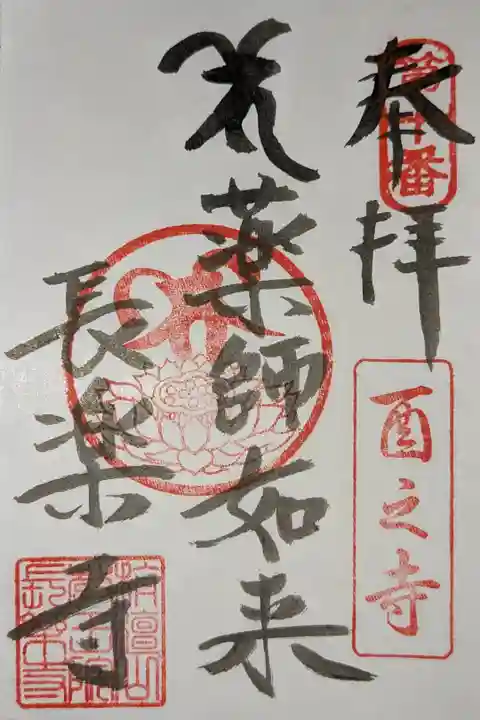 奉拝
第十番
酉之寺
薬師如来
長楽寺